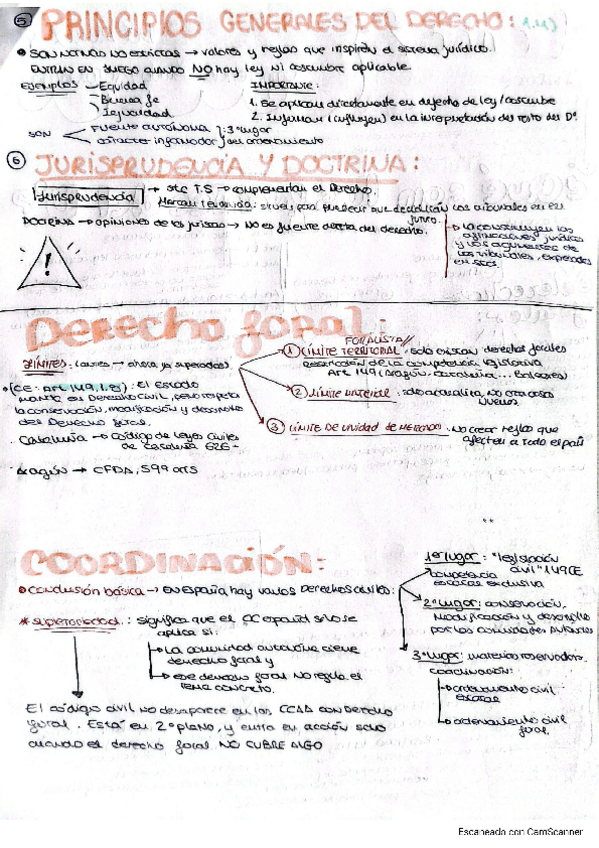 5 PRINCIPIOS GENERALES DEL DERECHO: 1.4)
SON NORMAS NO ESCRITAS → valores y reglas que inspiran el sistema jurídico.
ENTRAN EN JUEGO CUANDO NO hay ley ni costumbre aplicable.
EJEMPLOS Equidad
Buena fe
Igualdad
IMPORTANTE:
1. Se aplican directamente en defecto de ley/costumbre
2. Informan (influyen) en la interpretación del resto del Dº
SON FUENTE AUTÓNOMA: 3º lugar
carácter informador del ordenamiento
6 JURISPRUDENCIA Y DOCTRINA:
Jurisprudencia → stc T.S → complementan el Derecho.
sirven para
los tribunales en el
futuro.
DOCTRINA → opiniones de los juristas → NO es fuente directa del derecho.
La constituyen las
afirmaciones jurídicas
y los argumentos de
los tribunales, expresados
en sstcs
!
Derecho foral:
LÍMITES: (antes → ahora ya superados)
FORALISTA//
1 LÍMITE TERRITORIAL: solo existían derechos forales
competencia legislativa
Art 149 (Aragón, Cataluña... Baleares)
2 LÍMITE MATERIAL: solo actualiza, NO crea cosas
nuevas
3 LÍMITE DE UNIDAD DE MERCADO: NO crear reglas que
afecten a todo el país
(CE: Art. 149.1.8): El Estado
Derecho Civil, pero respeta
la conservación, modificación y desarrollo
del Derecho foral.
Cataluña → Código de leyes civiles
de Cataluña 626-
Aragón → CFDA, 599 arts
COORDINACIÓN:
CONCLUSIÓN básica → EN España hay varios Derechos civiles:
1er lugar: "legislación
civil" 149CE
competencia
estatal exclusiva
2º lugar: conservación,
Modificación y desarrollo
por las comunidades Autónomas
3er lugar: materias reservadas.
COORDINACIÓN:
ordenamiento civil
estatal
ordenamiento civil
foral.
* supletoriedad: significa que el CC español solo se
aplica si:
La comunidad autónoma tiene
derecho foral y
ese derecho foral NO regula el
tema concreto.
El código civil no desaparece en las CCAA con derecho
foral. Está en 2º plano, y entra en acción solo
cuando el derecho foral NO CUBRE ALGO
Escaneado con CamScanner